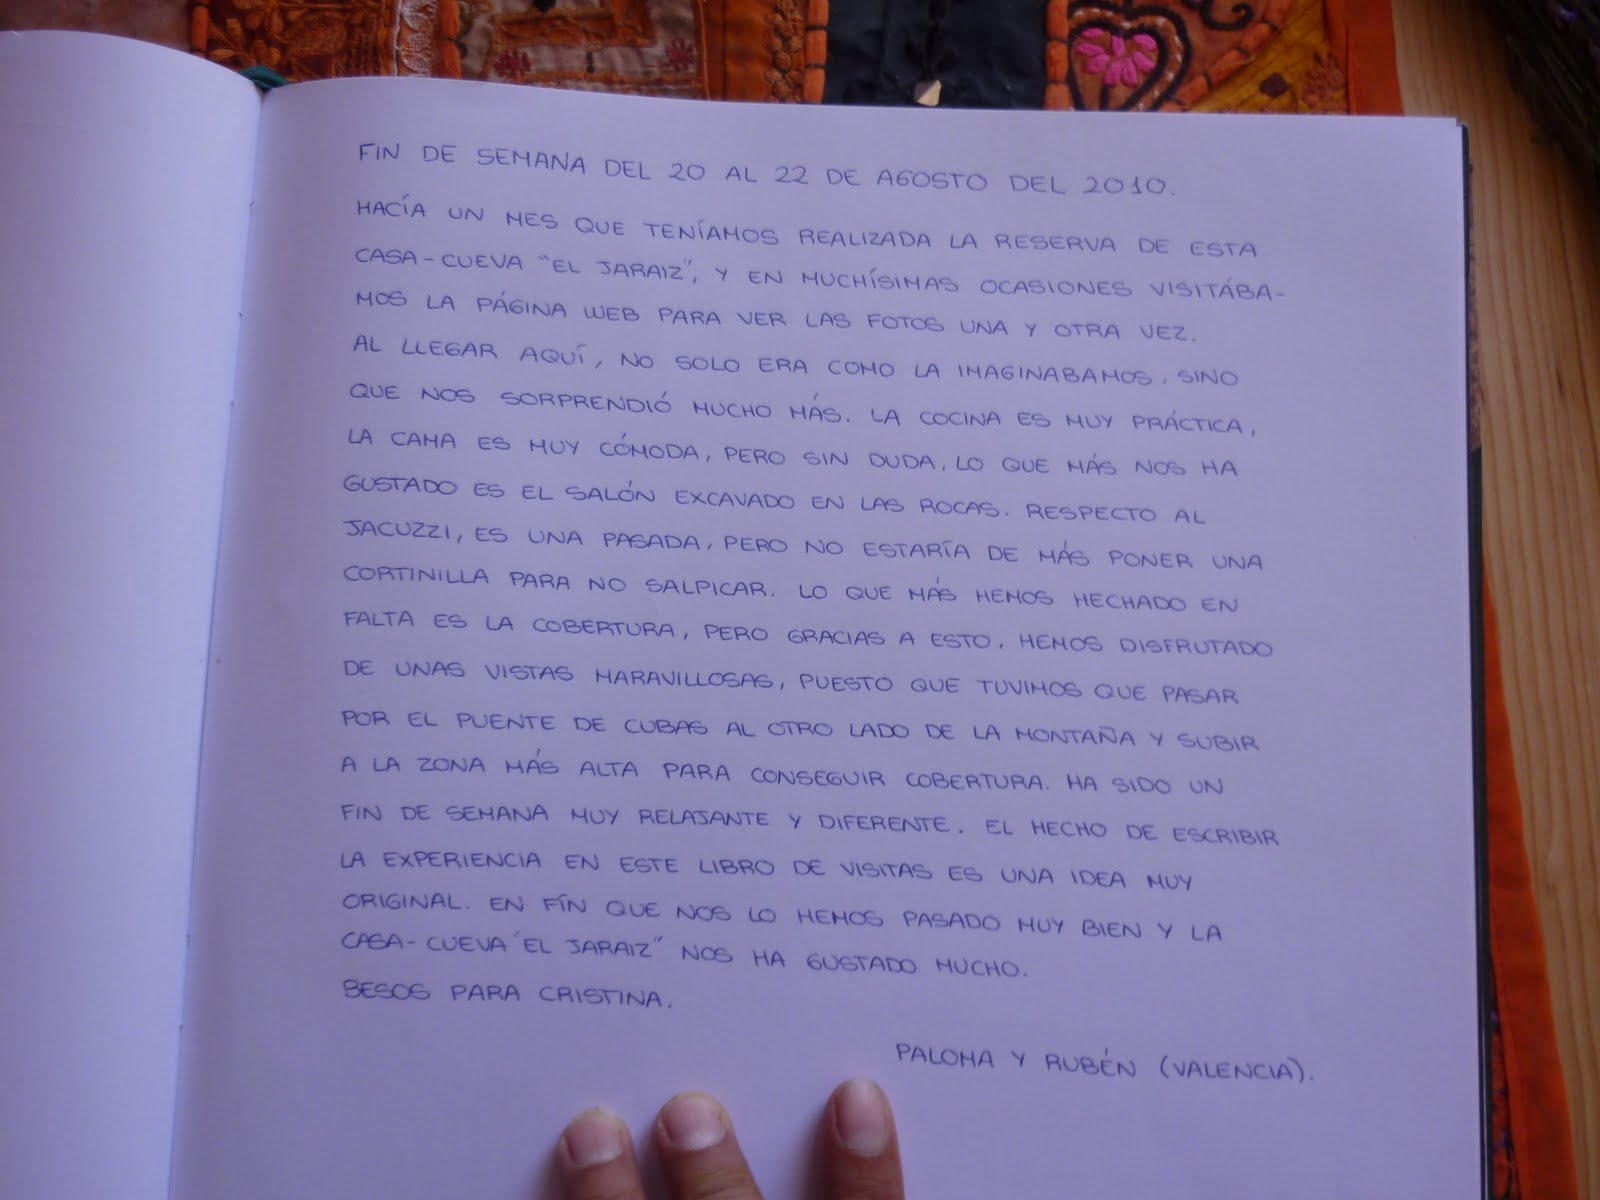 FIN DE SEMANA DEL 20 AL 22 DE AGOSTO DEL 2010.
HACÍA UN MES QUE TENÍAMOS REALIZADA LA RESERVA DE ESTA
CASA-CUEVA "EL JARAIZ", Y EN MUCHÍSIMAS OCASIONES VISITÁBA-
MOS LA PÁGINA WEB PARA VER LAS FOTOS UNA Y OTRA VEZ.
AL LLEGAR AQUÍ, NO SOLO ERA COMO LA IMAGINABAMOS, SINO
QUE NOS SORPRENDIÓ MUCHO MÁS. LA COCINA ES MUY PRÁCTICA,
LA CAMA ES MUY CÓMODA, PERO SIN DUDA, LO QUE MÁS NOS HA
GUSTADO ES EL SALÓN EXCAVADO EN LAS ROCAS. RESPECTO AL
JACUZZI, ES UNA PASADA, PERO NO ESTARÍA DE MÁS PONER UNA
CORTINILLA PARA NO SALPICAR. LO QUE MÁS HEMOS HECHADO EN
FALTA ES LA COBERTURA, PERO GRACIAS A ESTO, HEMOS DISFRUTADO
DE UNAS VISTAS MARAVILLOSAS, PUESTO QUE TUVIMOS QUE PASAR
POR EL PUENTE DE CUBAS AL OTRO LADO DE LA MONTAÑA Y SUBIR
A LA ZONA MÁS ALTA PARA CONSEGUIR COBERTURA. HA SIDO UN
FIN DE SEMANA MUY RELAJANTE Y DIFERENTE. EL HECHO DE ESCRIBIR
LA EXPERIENCIA EN ESTE LIBRO DE VISITAS ES UNA IDEA MUY
ORIGINAL. EN FÍN QUE NOS LO HEMOS PASADO MUY BIEN Y LA
CASA-CUEVA "EL JARAIZ" NOS HA GUSTADO MUCHO.
BESOS PARA CRISTINA.
PALOMA Y RUBÉN (VALENCIA).